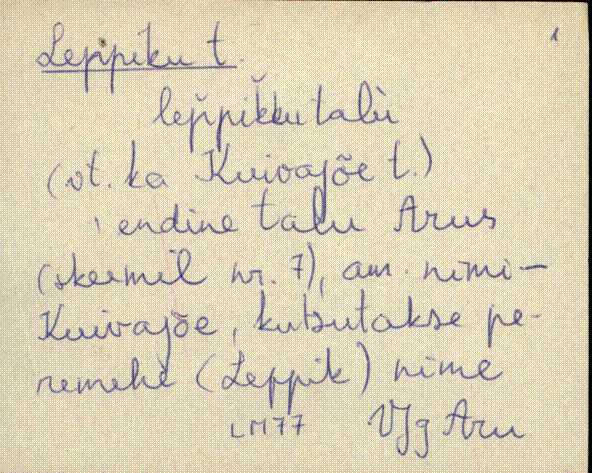 1
Leppiku t.
lep̆pik̆ku talù
(vt. ka Kuivajõe t.)
endine talu Arus
(skeemil nr. 7), am. nimi-
Kuivajõe, kutsutakse pe-
remehe (Leppik) nime
LM77 VJg Aru